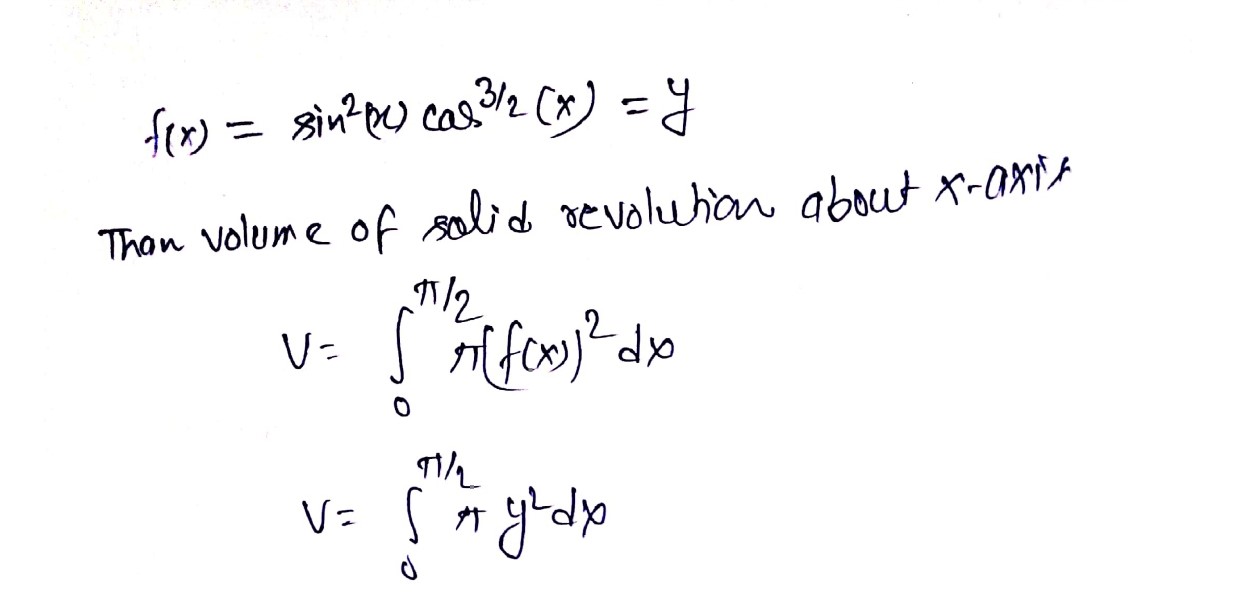 f(x) = sin²(x) cos^3/2 (x) = y
Than volume of solid revolution about x-axis
V = ∫₀^π/2 π(f(x))² dx
V = ∫₀^π/2 π y² dx